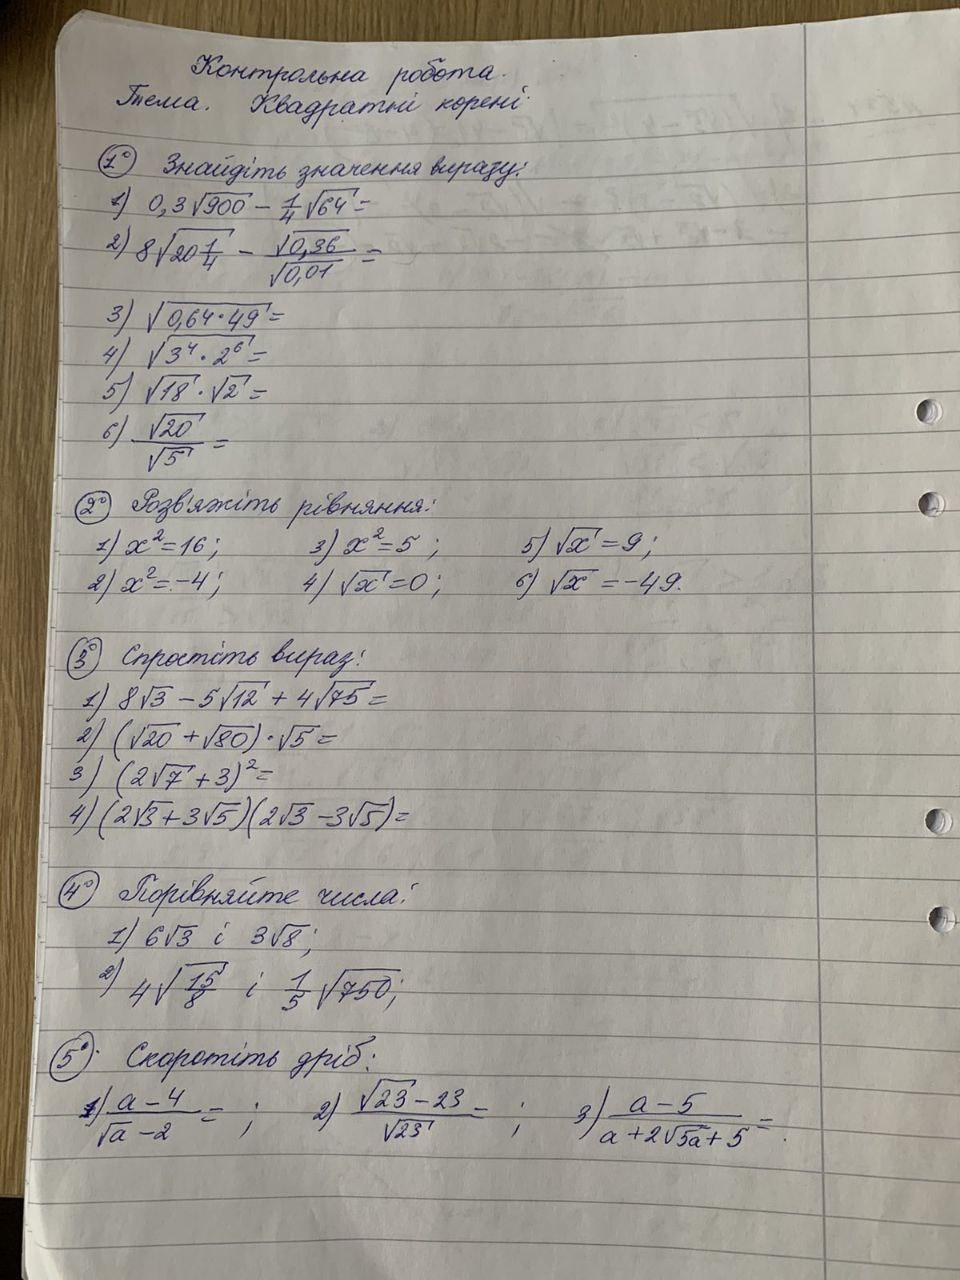 Контрольна робота.
Тема. Квадратні корені
1° Знайдіть значення виразу:
1) 0,3√900 − 1/4 √64 =
2) 8√(20 1/4) − √0,36/√0,01 =
3) √(0,64 · 49) =
4) √(3⁴ · 2⁶) =
5) √18 · √2 =
6) √20/√5 =
2° Розв'яжіть рівняння:
1) x² = 16; 3) x² = 5; 5) √x = 9;
2) x² = −4; 4) √x = 0; 6) √x = −49.
3° Спростіть вираз:
1) 8√3 − 5√12 + 4√75 =
2) (√20 + √80) · √5 =
3) (2√7 + 3)² =
4) (2√3 + 3√5)(2√3 − 3√5) =
4° Порівняйте числа:
1) 6√3 і 3√8;
2) 4√(15/8) і 1/5 √750;
5°. Скоротіть дріб:
1) (a − 4)/(√a − 2) = ; 2) (√23 − 23)/√23 = ; 3) (a − 5)/(a + 2√(5a) + 5) = .